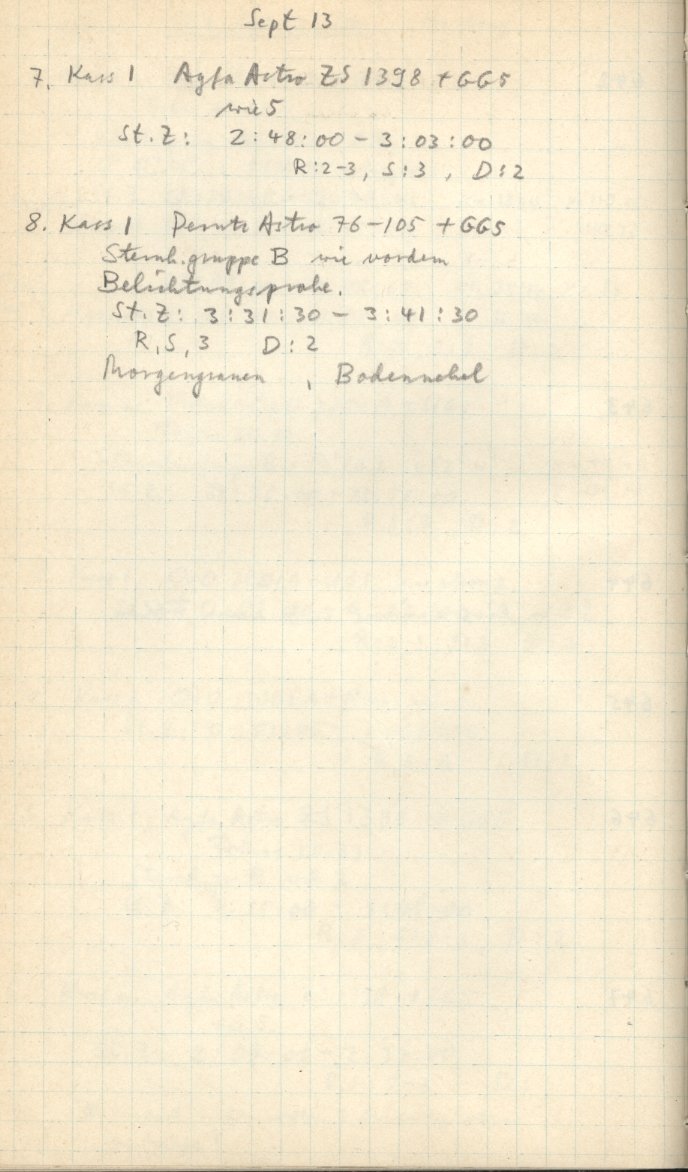 Sept 13
7. Kass 1 Agfa Astro ZS 1398 + GG5
wie 5
St. Z: 2:48:00 - 3:03:00
R:2-3, S:3, D:2
8. Kass 1 Perutz Astro 76-105 + GG5
Sternh. gruppe B wie vordem
Belichtungsprobe.
St. Z: 3:31:30 - 3:41:30
R, S, 3 D:2
Morgengrauen, Bodennebel